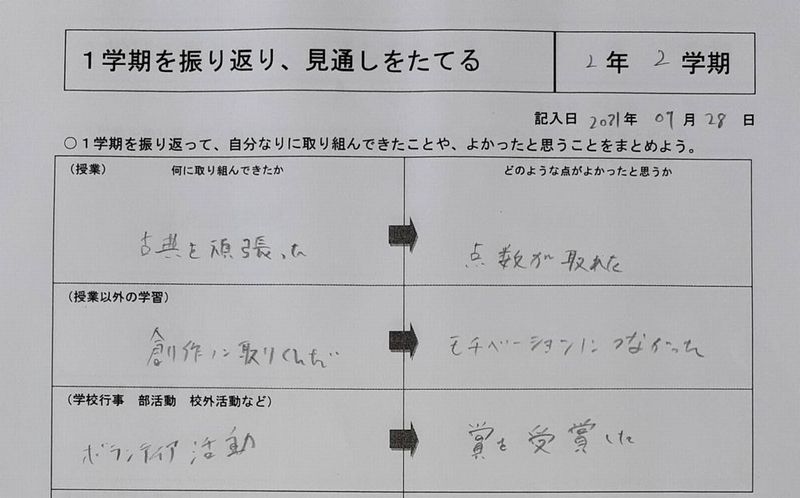 1学期を振り返り、見通しをたてる
2年 2学期
記入日 2021年 09月 28日
○1学期を振り返って、自分なりに取り組んできたことや、よかったと思うことをまとめよう。
(授業) 何に取り組んできたか
どのような点がよかったと思うか
古典を頑張った
点数が取れた
(授業以外の学習)
創作に取りくんだ
モチベーションにつながった
(学校行事 部活動 校外活動など)
ボランティア活動
賞を受賞した